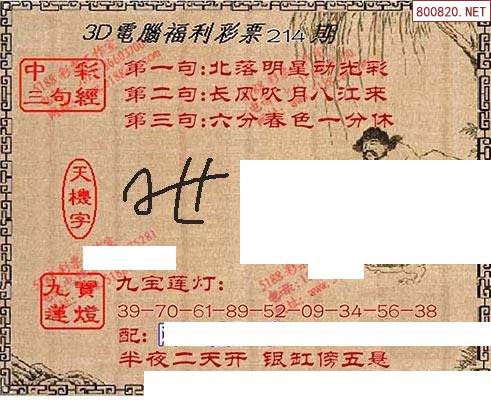 800820.NET
3D電腦福利彩票214期
中彩三句經
第一句:北落明星动光彩
第二句:长风吹月八江来
第三句:六分春色一分休
天機字
九寶蓮燈
九宝莲灯:
39-70-61-89-52-09-34-56-38
配:
半夜二天开 银缸傍五悬